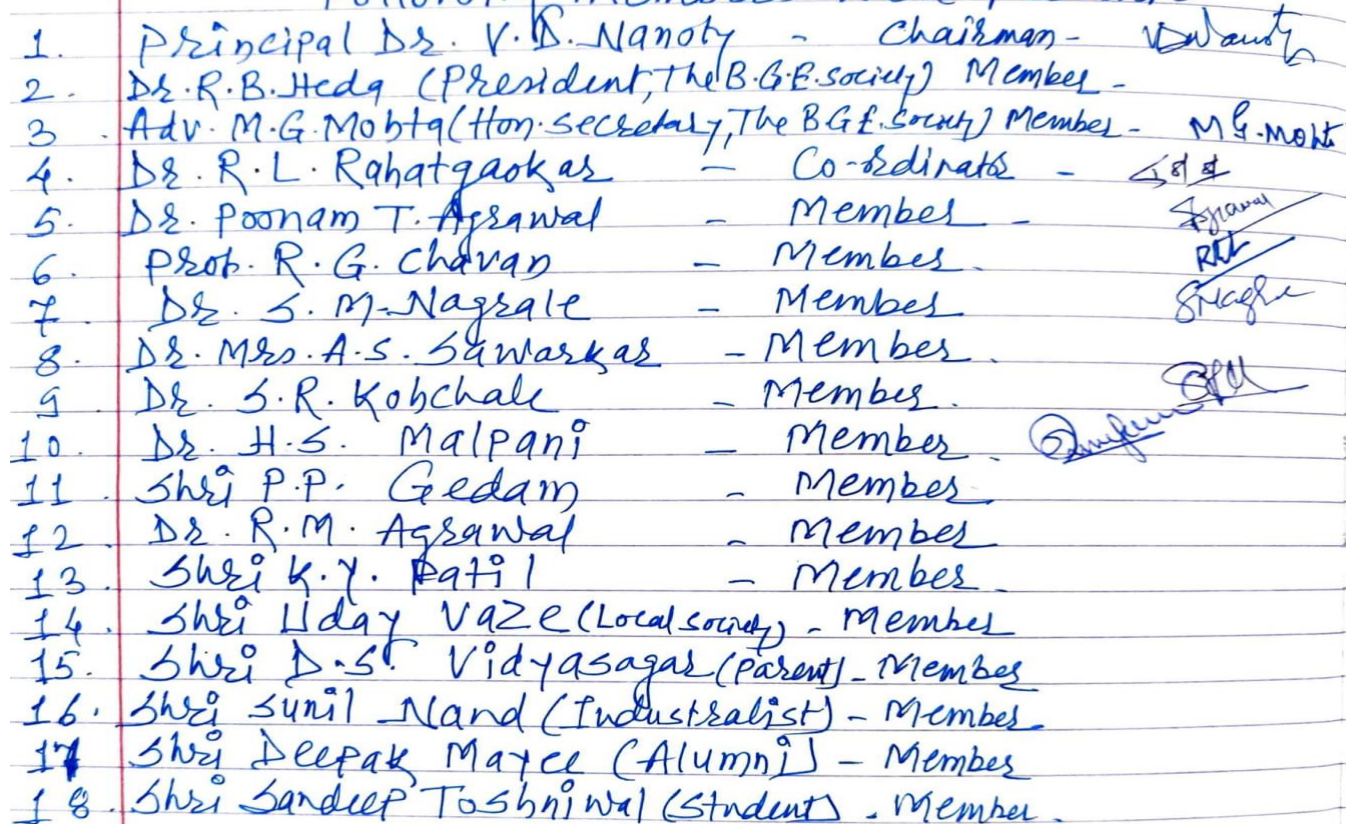 Following Members were present
1. Principal Dr. V. D. Nanoty - Chairman -
2. Dr. R. B. Heda (President, The B.G.E. society) Member -
3. Adv. M. G. Mohta (Hon. secretary, The B G E. society) Member - M G. Moht
4. Dr. R. L. Rahatgaokar - Co-ordinator -
5. Dr. Poonam T. Agrawal - Member -
6. Prof. R. G. Chavan - Member.
7. Dr. S. M. Nagrale - Member
8. Dr. Mrs. A. S. Sawarkar - Member.
9 Dr. S. R. Kohchale - Member.
10. Dr. H. S. Malpani - Member.
11. Shri P. P. Gedam - Member
12. Dr. R. M. Agrawal - Member
13. Shri K. Y. Patil - Member.
14. Shri Uday Vaze (Local society) - Member
15. Shri D. S. Vidyasagar (Parent) - Member
16. Shri Sunil Nand (Industralist) - Member
17 Shri Deepak Mayee (Alumni) - Member
18. Shri Sandeep Toshniwal (Student) - Member.